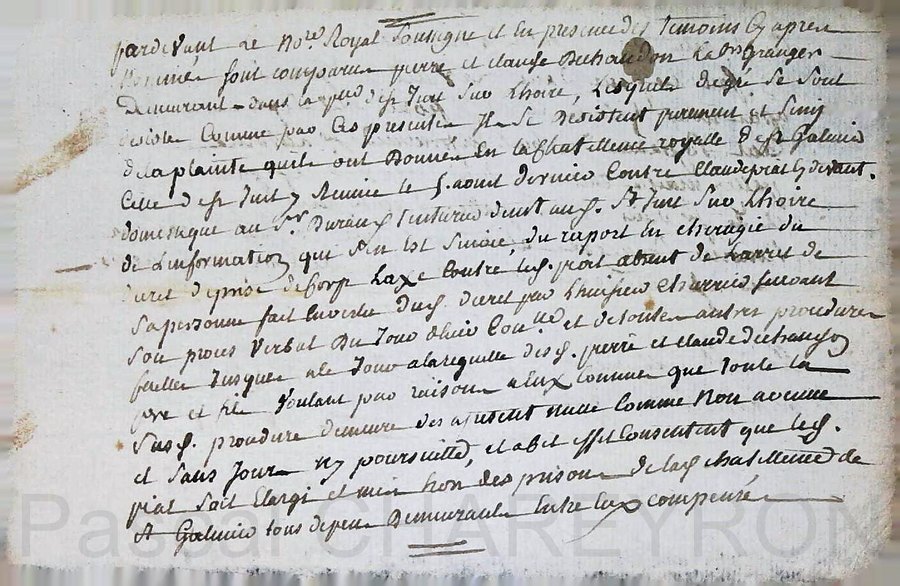 pardevant le No.re Royal soussigne et En presence des temoins Cy apres
Nommés sont comparu pierre et claude Dechandon Lab.rs Granger
Demeurant dans la p.sse de St Just sur Lhoire, Lesquels de gré se sont
desiste Comme par Ces presentes Ils se Desistent purement et simp
de la plainte quils ont Donnée En la Chatellenie royalle de St Galmier
Celle de St Just y Reunie le 5. aout dernier Contre Claude piat Cy devant
domestique au Sr. Bureau aud. St Just sur Lhoire
de Linformation qui sen Est suivie, du raport En chirurgie du
decret de prise de Corps Laxe Contre led. piat absent de Larret de
Sa personne fait En vertu dud. decret par Lhuissier Charrier suivant
Son proces Verbal Du Jour dhier et de toutes autres procedures
faittes Jusques a Ce Jour a la requette desd. pierre et claude dechandon
pere et fils Voulant pour raison a Eux Connue que toute la
Susd. procedure demeure des a present nulle Comme Non avenue
et Sans Jour ny poursuitte, et a Cet effet Consentent que led.
piat soit Elargi et mis hors des prisons de lad. chatellenie de
St Galmier tous depens Demeurant Entre Eux compensés
Pascal CHAREYRON